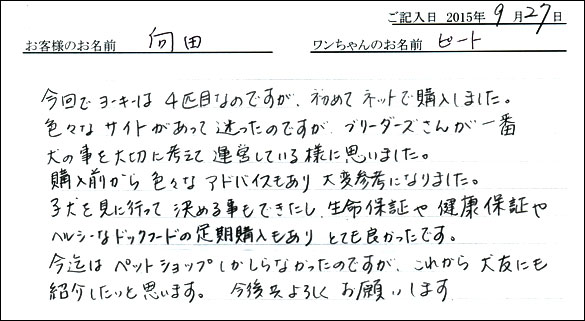 ご記入日 2015年 9月27日
お客様のお名前 向田 ワンちゃんのお名前 ビート
今回でヨーキーは4匹目なのですが、初めてネットで購入しました。
色々なサイトがあって迷ったのですが、ブリーダーズさんが一番
犬の事を大切に考えて運営している様に思いました。
購入前から色々なアドバイスもあり大変参考になりました。
子犬を見に行って決める事もできたし、生命保証や健康保証や
ヘルシーなドックフードの定期購入もありとても良かったです。
今迄はペットショップしかしらなかったのですが、これから犬友にも
紹介したいと思います。今後共よろしくお願いします